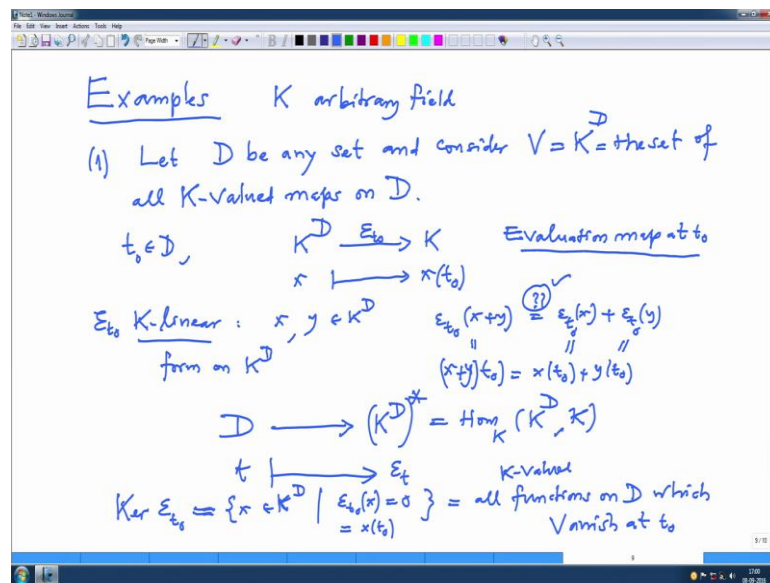 Note1 - Windows Journal
File Edit View Insert Actions Tools Help
Page Width
Examples K arbitrary field
(1) Let D be any set and consider V = K^D = the set of
all K-valued maps on D.
t₀ ∈ D, K^D —ε_{t₀}→ K Evaluation map at t₀
x ↦ x(t₀)
ε_{t₀} K-linear : x, y ∈ K^D ε_{t₀}(x+y) =(??)✓ ε_{t₀}(x) + ε_{t₀}(y)
form on K^D || || ||
(x+y)(t₀) = x(t₀) + y(t₀)
D ⟶ (K^D)^* = Hom_K (K^D, K)
t ↦ ε_t K-valued
Ker ε_{t₀} = {x ∈ K^D | ε_{t₀}(x) = 0 } = all functions on D which
= x(t₀) Vanish at t₀
9/10
9
17:00